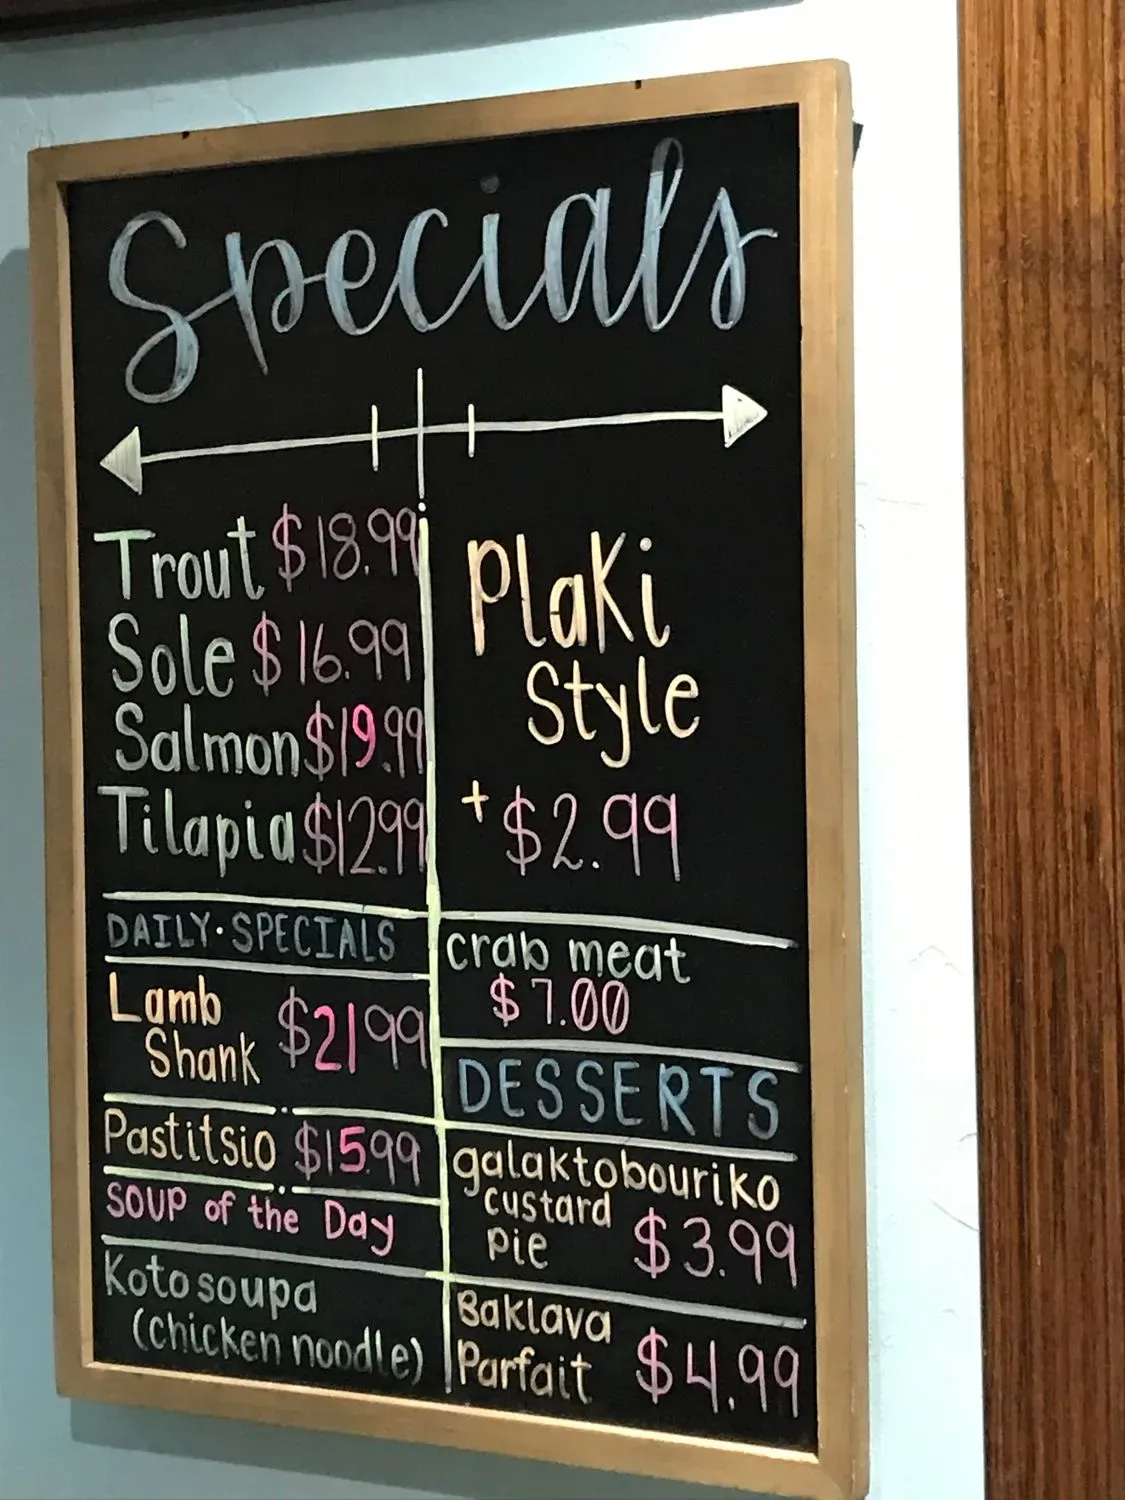 Specials
Trout $18.99
Sole $16.99
Salmon $19.99
Tilapia $12.99
Plaki
Style
+ $2.99
DAILY·SPECIALS
Lamb
Shank $21.99
Pastitsio $15.99
SOUP of the Day
Koto soupa
(chicken noodle)
crab meat
$7.00
DESSERTS
galaktobouriko
custard
pie $3.99
Baklava
Parfait $4.99